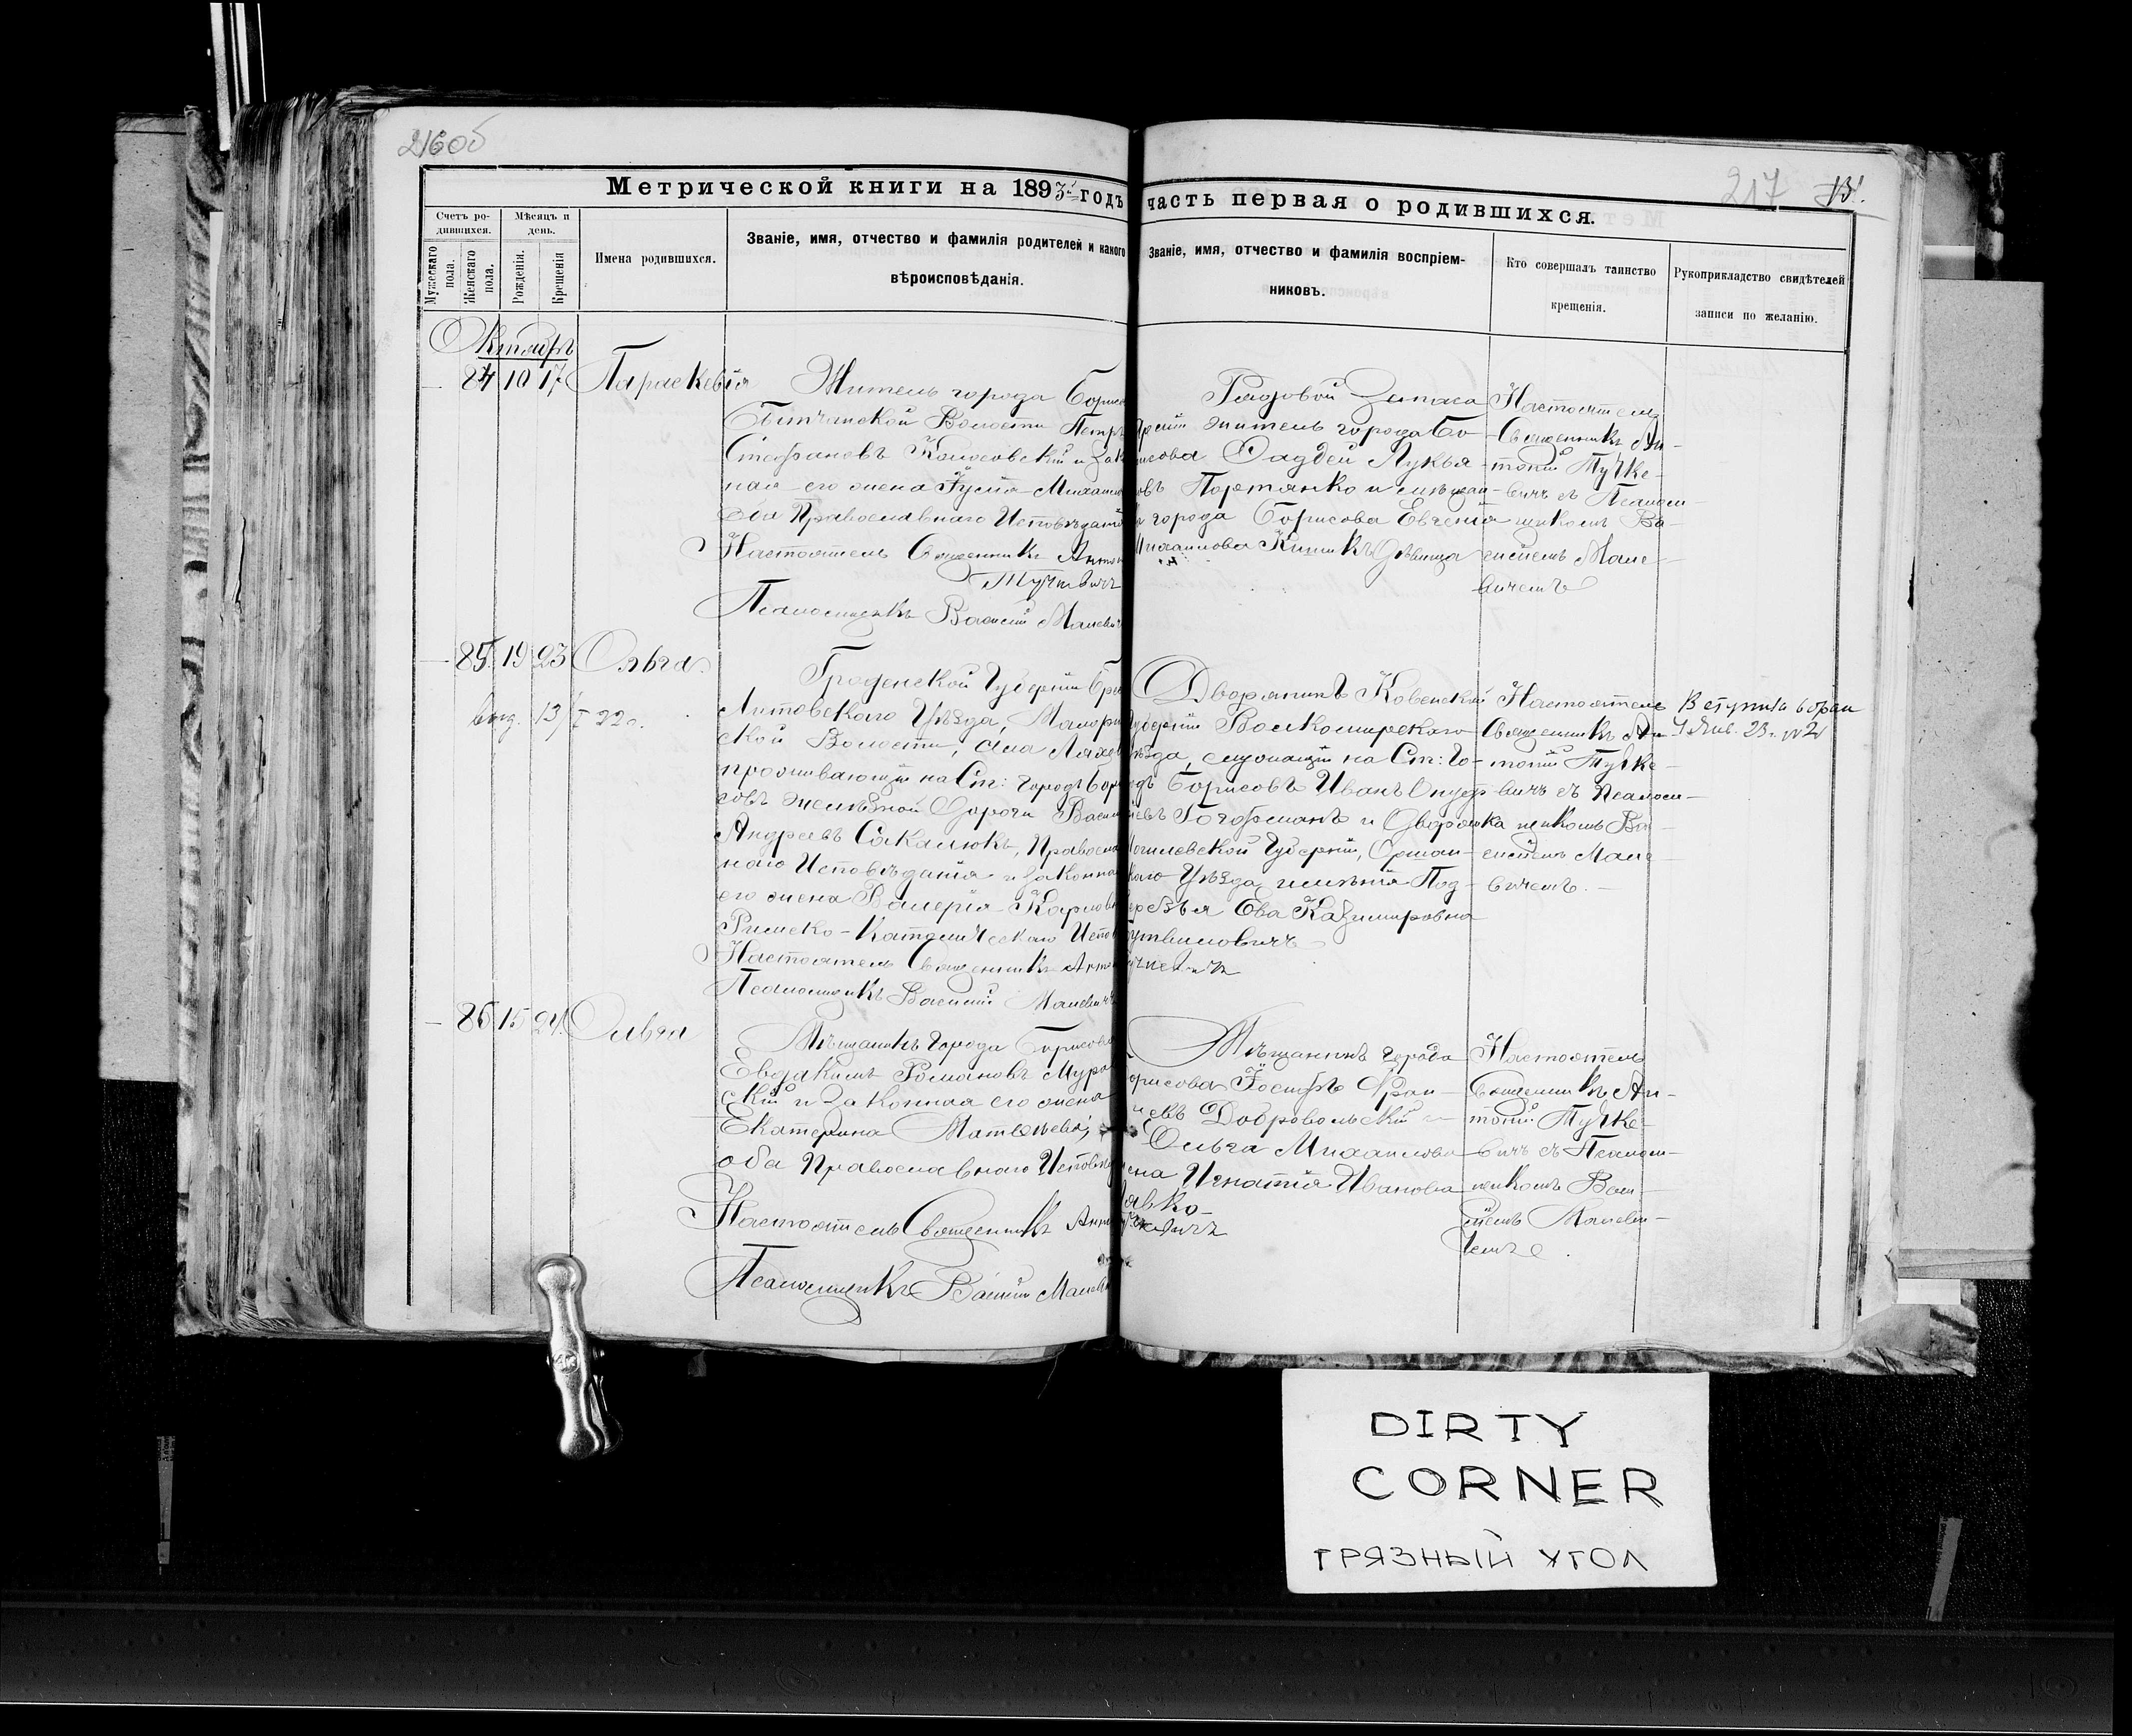 216об
217
Метрической книги на 1893й годъ часть первая о родившихся.
Счетъ родившихся.
Мужескаго пола.
Женскаго пола.
Мѣсяцъ и день.
Рожденія.
Крещенія
Имена родившихся.
Званіе, имя, отчество и фамилія родителей и какого
вѣроисповѣданія.
Званіе, имя, отчество и фамилія воспріем-
никовъ.
Кто совершалъ таинство
крещенія.
Рукоприкладство свидѣтелей
записи по желанію.
Октябрь
84 10 17 Параскевія
Житель города Борисо
Волости Петръ
Стефановъ и Зак
ная его жена Михаило
оба Православнаго Исповѣданія
Настоятель Священникъ Антон
Псаломщикъ Василій Малевич
Рядовой Запаса
житель города Бо-
рисова Лукья-
овъ Портянко и
города Борисова Евгенія
Михаилова дѣвица
Настоятель
Священникъ Ан-
тоній Тучке-
вичъ съ Псалом-
щикомъ Ва-
силіемъ Мале-
вичемъ
85 19 23 Ольга
выд. 13/I 22 г.
Гроденской Губерніи Бре
Литовскаго Уѣзда, Малори
ской Волости, села
проживающій на Ст: городъ Бори
совъ желѣзной Дороги Васил
Андреевъ Сакалюкъ, Правосла
наго Исповѣданія и законная
его жена Валерія Карловн
Римско-Католическаго Испов
Настоятель Священникъ Анто
Псаломщикъ Василій Малевичъ
Дворянинъ Ковенской
Губерніи Волкомирскаго
уѣзда, служащій на Ст: Го-
одъ Борисовъ Иванъ
Гогофманъ и Дворянка
Могилевской Губерніи, Оршан-
скаго Уѣзда имѣнія Под-
Ева Казимировна
Настоятель
Священникъ Ан-
тоній Тучке-
вичъ съ Псалом-
щикомъ Ва-
силіемъ Мале-
вичемъ.
Вступила в брак
4 Янв. 23 г. №2
86 15 24 Ольга
Мѣщанинъ города Борисова
Евдакимъ Романовъ Мура
скій и Законная его жена
Екатерина Матѳеева,
оба Православнаго Исповѣд
Настоятель Священникъ Анто
Псаломщикъ Василій Малеви
Мѣщанинъ города
орисова Іосифъ Фран-
Добровольскій и
Ольга Михаилова
ена Игнатія Иванова
Настоятель
Священникъ Ан-
тоній Тучке-
вичъ съ Псалом-
щикомъ Васи-
ліемъ Малеви-
чемъ.
DIRTY
CORNER
ГРЯЗНЫЙ УГОЛ